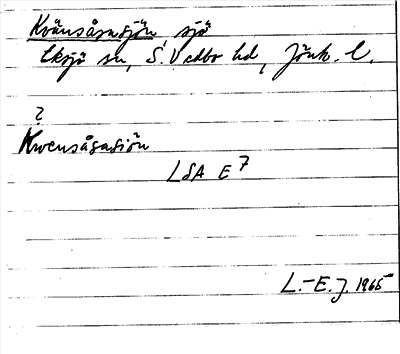 Kvänsåsasjön, sjö
Eksjö sn, S. Vedbo hd, Jönk. l.
?
Kwensåsasiön
LSA E7
L.-E.J. 1965